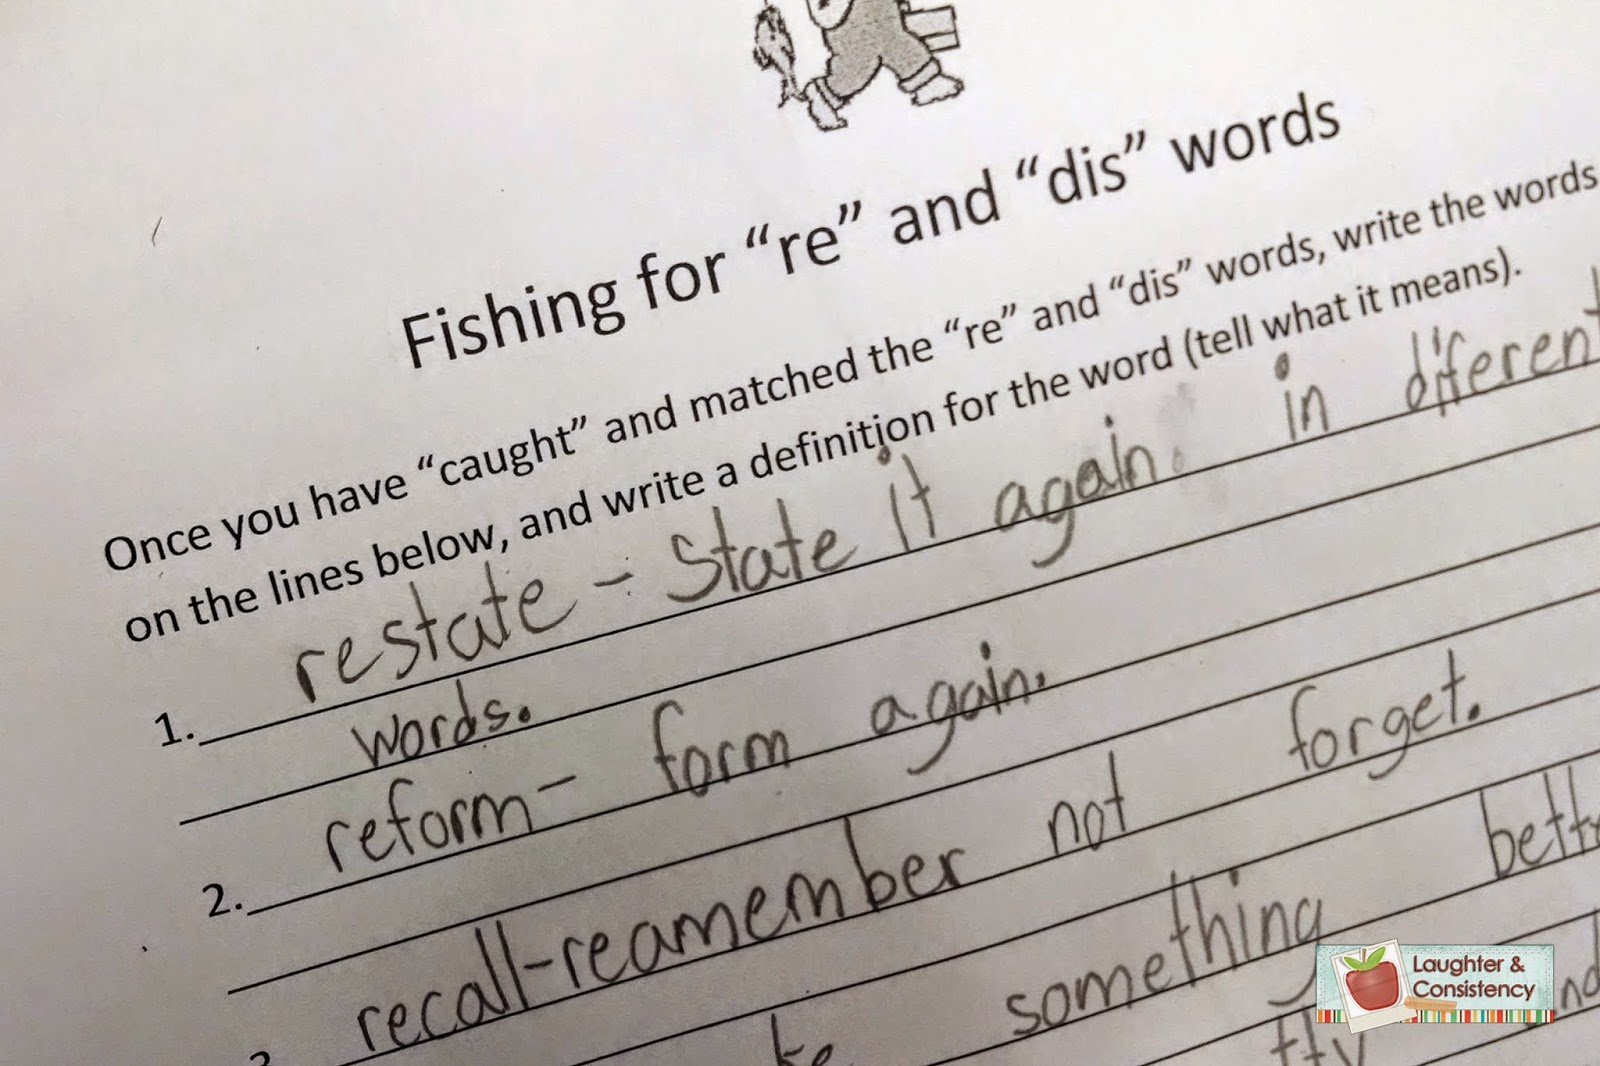 Fishing for “re” and “dis” words
Once you have “caught” and matched the “re” and “dis” words, write the words
on the lines below, and write a definition for the word (tell what it means).
1. restate - State it again. in diferent
words.
2. reform - form again.
3. recall-reamember not forget.
something
Laughter &
Consistency